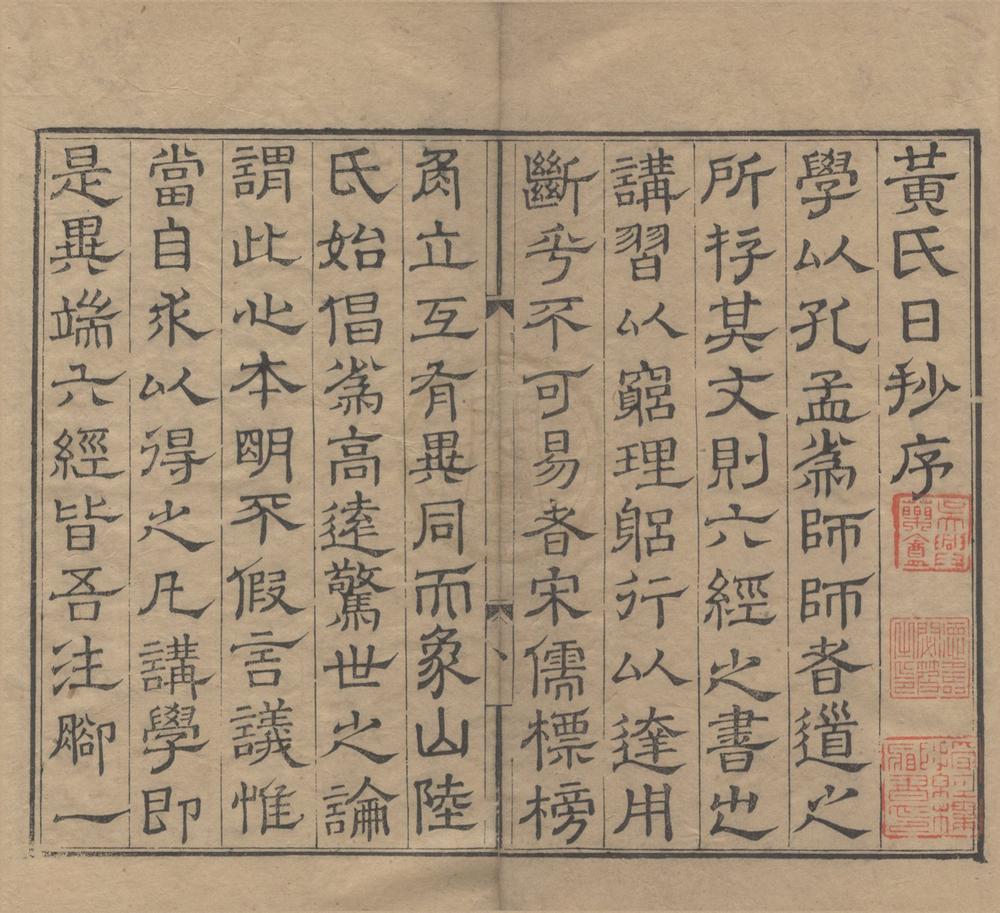 黃氏日抄序
學以孔孟爲師師者道之
所存其文則六經之書也
講習以窮理躬行以達用
斷乎不可易者宋儒標榜
角立互有異同而象山陸
氏始倡爲高遠驚世之論
謂此心本明不假言議惟
當自求以得之凡講學即
是異端六經皆吾注腳一
授經樓藏書印